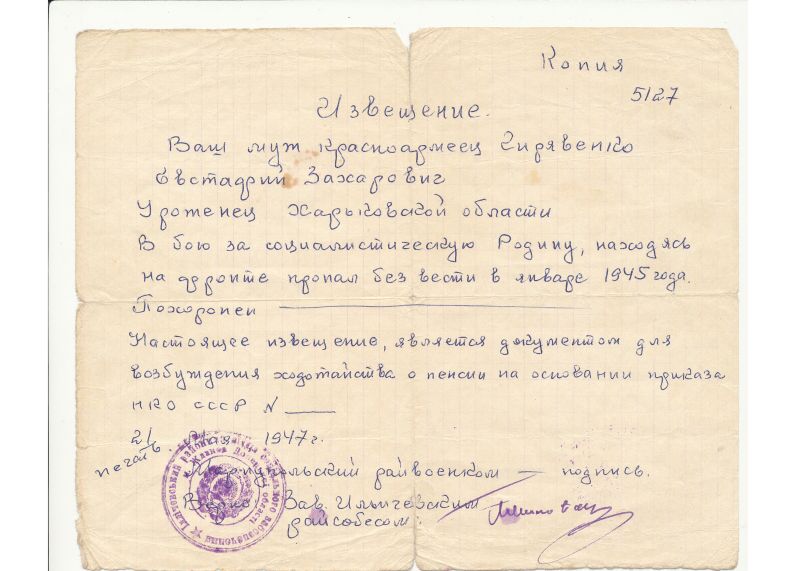 Копия
5127
Извещение.
Ваш муж красноармеец Гирявенко
Евстафий Захарович
Уроженец Харьковской области
В бою за социалистическую Родину, находясь
на фронте пропал без вести в январе 1945 года.
Похоронен
Настоящее извещение, является документом для
возбуждения ходотайства о пенсии на основании приказа
НКО СССР N
21/ 1947 г.
печать Мариупольский райвоенком — подпись.
Верно: Зав. Ильичевским
райсобесом: